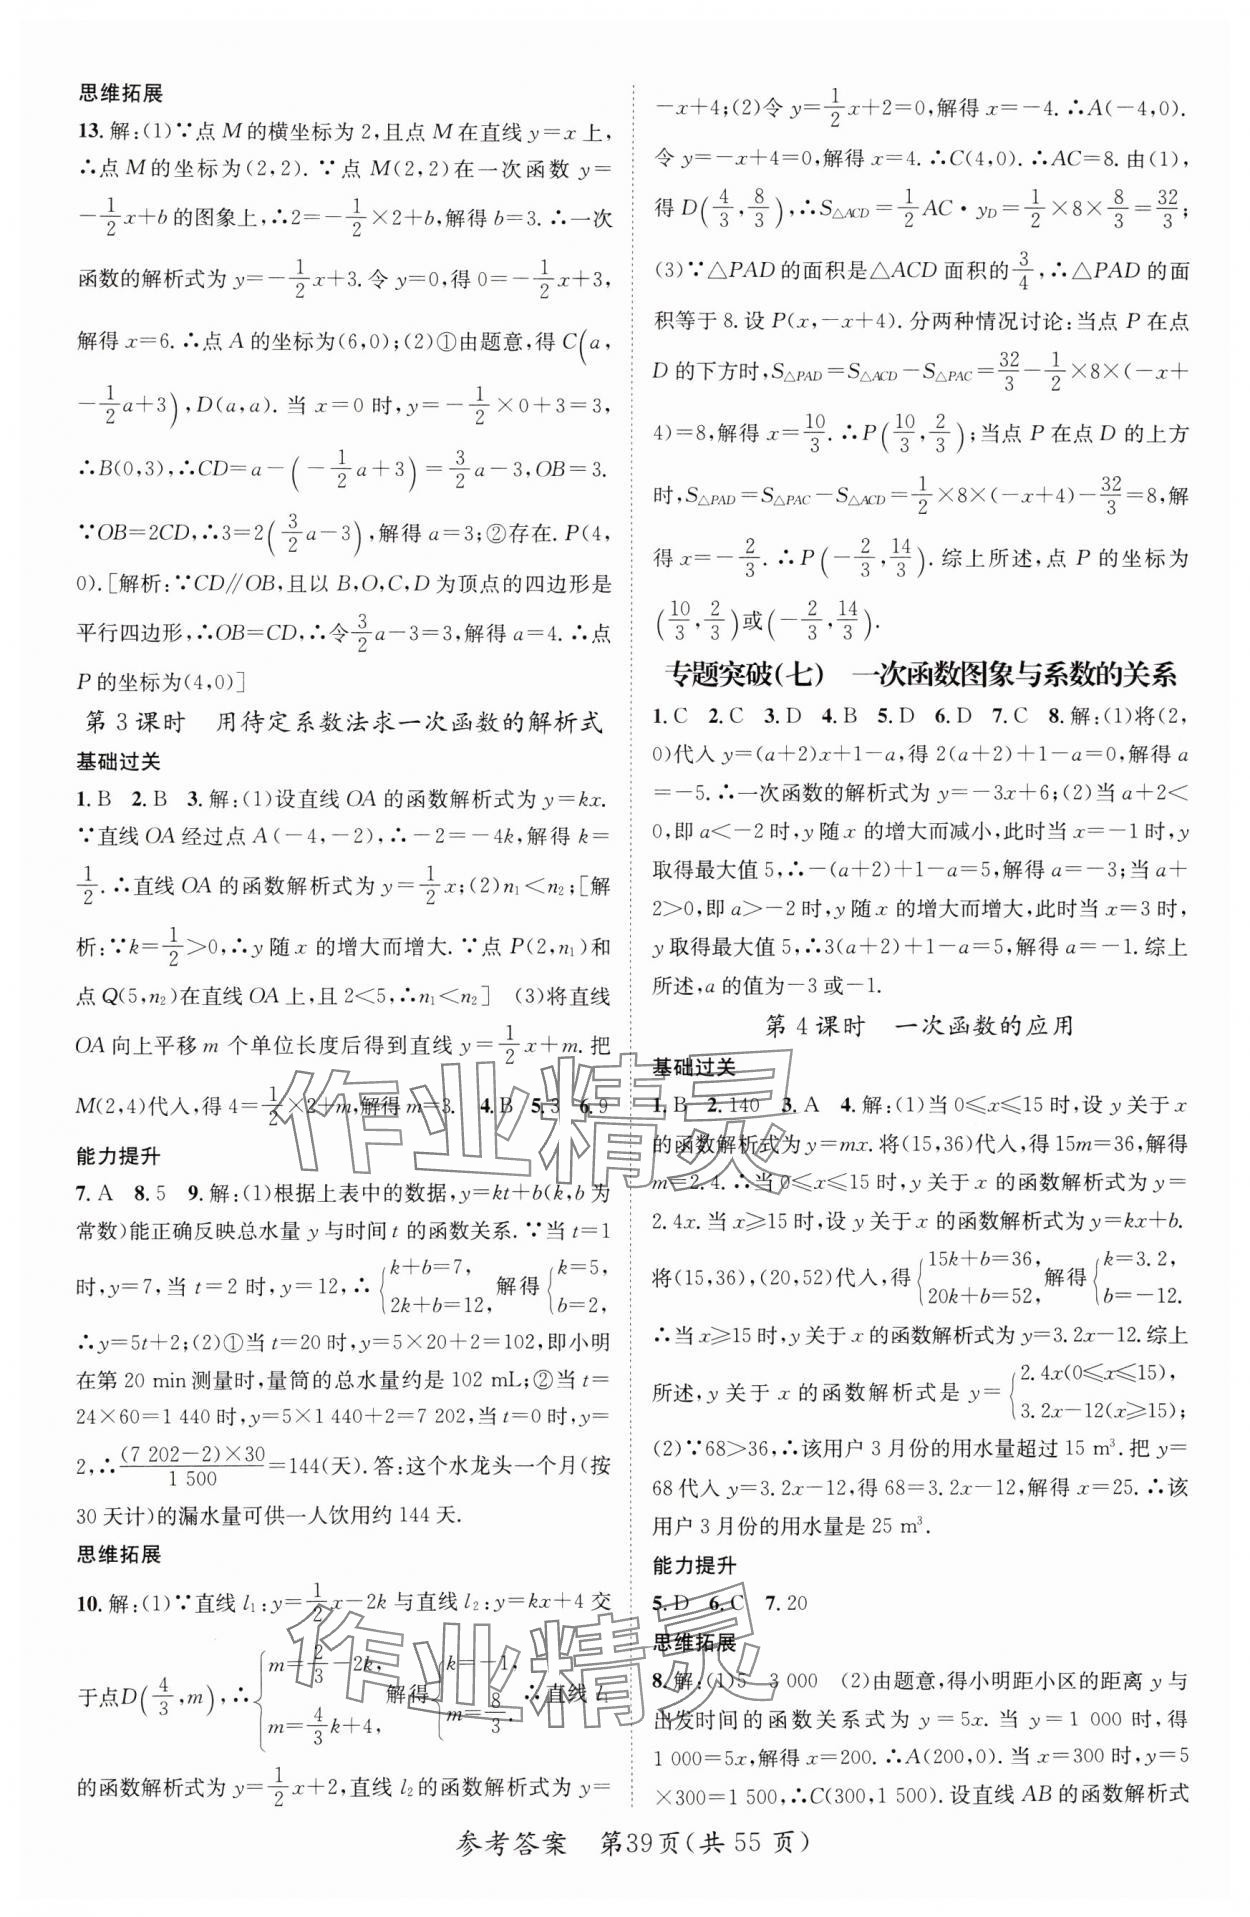 思维拓展
13.解:(1)∵点M的横坐标为2,且点M在直线y=x上,
∴点M的坐标为(2,2).∵点M(2,2)在一次函数y=
-1/2x+b的图象上,∴2=-1/2×2+b,解得b=3.∴一次
函数的解析式为y=-1/2x+3.令y=0,得0=-1/2x+3,
解得x=6.∴点A的坐标为(6,0);(2)①由题意,得C(a,
-1/2a+3),D(a,a).当x=0时,y=-1/2×0+3=3,
∴B(0,3),∴CD=a-(-1/2a+3)=3/2a-3,OB=3.
∵OB=2CD,∴3=2(3/2a-3),解得a=3;②存在.P(4,
0).[解析:∵CD∥OB,且以B,O,C,D为顶点的四边形是
平行四边形,∴OB=CD,∴令3/2a-3=3,解得a=4.∴点
P的坐标为(4,0)]
第3课时 用待定系数法求一次函数的解析式
基础过关
1.B 2.B 3.解:(1)设直线OA的函数解析式为y=kx.
∵直线OA经过点A(-4,-2),∴-2=-4k,解得k=
1/2.∴直线OA的函数解析式为y=1/2x;(2)n₁<n₂;[解
析:∵k=1/2>0,∴y随x的增大而增大.∵点P(2,n₁)和
点Q(5,n₂)在直线OA上,且2<5,∴n₁<n₂] (3)将直线
OA向上平移m个单位长度后得到直线y=1/2x+m.把
M(2,4)代入,得4=1/2×2+m,解得m=3. 4.B 5.3 6.9
能力提升
7.A 8.5 9.解:(1)根据上表中的数据,y=kt+b(k,b为
常数)能正确反映总水量y与时间t的函数关系.∵当t=1
时,y=7,当t=2时,y=12,∴{k+b=7, 2k+b=12,解得{k=5, b=2,
∴y=5t+2;(2)①当t=20时,y=5×20+2=102,即小明
在第20 min测量时,量筒的总水量约是102 mL;②当t=
24×60=1 440时,y=5×1 440+2=7 202,当t=0时,y=
2,∴(7 202-2)×30/1 500=144(天).答:这个水龙头一个月(按
30天计)的漏水量可供一人饮用约144天.
思维拓展
10.解:(1)∵直线l₁:y=1/2x-2k与直线l₂:y=kx+4交
于点D(4/3,m),∴{m=2/3-2k, m=4/3k+4,解得{k=-1, m=8/3.∴直线l₁
的函数解析式为y=1/2x+2,直线l₂的函数解析式为y=
-x+4;(2)令y=1/2x+2=0,解得x=-4.∴A(-4,0).
令y=-x+4=0,解得x=4.∴C(4,0).∴AC=8.由(1),
得D(4/3,8/3),∴S△ACD=1/2AC·yD=1/2×8×8/3=32/3;
(3)∵△PAD的面积是△ACD面积的3/4,∴△PAD的面
积等于8.设P(x,-x+4).分两种情况讨论:当点P在点
D的下方时,S△PAD=S△ACD-S△PAC=32/3-1/2×8×(-x+
4)=8,解得x=10/3.∴P(10/3,2/3);当点P在点D的上方
时,S△PAD=S△PAC-S△ACD=1/2×8×(-x+4)-32/3=8,解
得x=-2/3.∴P(-2/3,14/3).综上所述,点P的坐标为
(10/3,2/3)或(-2/3,14/3).
专题突破(七) 一次函数图象与系数的关系
1.C 2.C 3.D 4.B 5.D 6.D 7.C 8.解:(1)将(2,
0)代入y=(a+2)x+1-a,得2(a+2)+1-a=0,解得a
=-5.∴一次函数的解析式为y=-3x+6;(2)当a+2<
0,即a<-2时,y随x的增大而减小,此时当x=-1时,y
取得最大值5,∴-(a+2)+1-a=5,解得a=-3;当a+
2>0,即a>-2时,y随x的增大而增大,此时当x=3时,
y取得最大值5,∴3(a+2)+1-a=5,解得a=-1.综上
所述,a的值为-3或-1.
第4课时 一次函数的应用
基础过关
1.B 2.140 3.A 4.解:(1)当0≤x≤15时,设y关于x
的函数解析式为y=mx.将(15,36)代入,得15m=36,解得
m=2.4.∴当0≤x≤15时,y关于x的函数解析式为y=
2.4x.当x≥15时,设y关于x的函数解析式为y=kx+b.
将(15,36),(20,52)代入,得{15k+b=36, 20k+b=52,解得{k=3.2, b=-12.
∴当x≥15时,y关于x的函数解析式为y=3.2x-12.综上
所述,y关于x的函数解析式是y={2.4x(0≤x≤15), 3.2x-12(x≥15);
(2)∵68>36,∴该用户3月份的用水量超过15 m³.把y=
68代入y=3.2x-12,得68=3.2x-12,解得x=25.∴该
用户3月份的用水量是25 m³.
能力提升
5.D 6.C 7.20
思维拓展
8.解:(1)5 3 000 (2)由题意,得小明距小区的距离y与
出发时间的函数关系式为y=5x.当y=1 000时,得
1 000=5x,解得x=200.∴A(200,0).当x=300时,y=5
×300=1 500,∴C(300,1 500).设直线AB的函数解析式
参考答案 第39页(共55页)
作业精灵
作业精灵